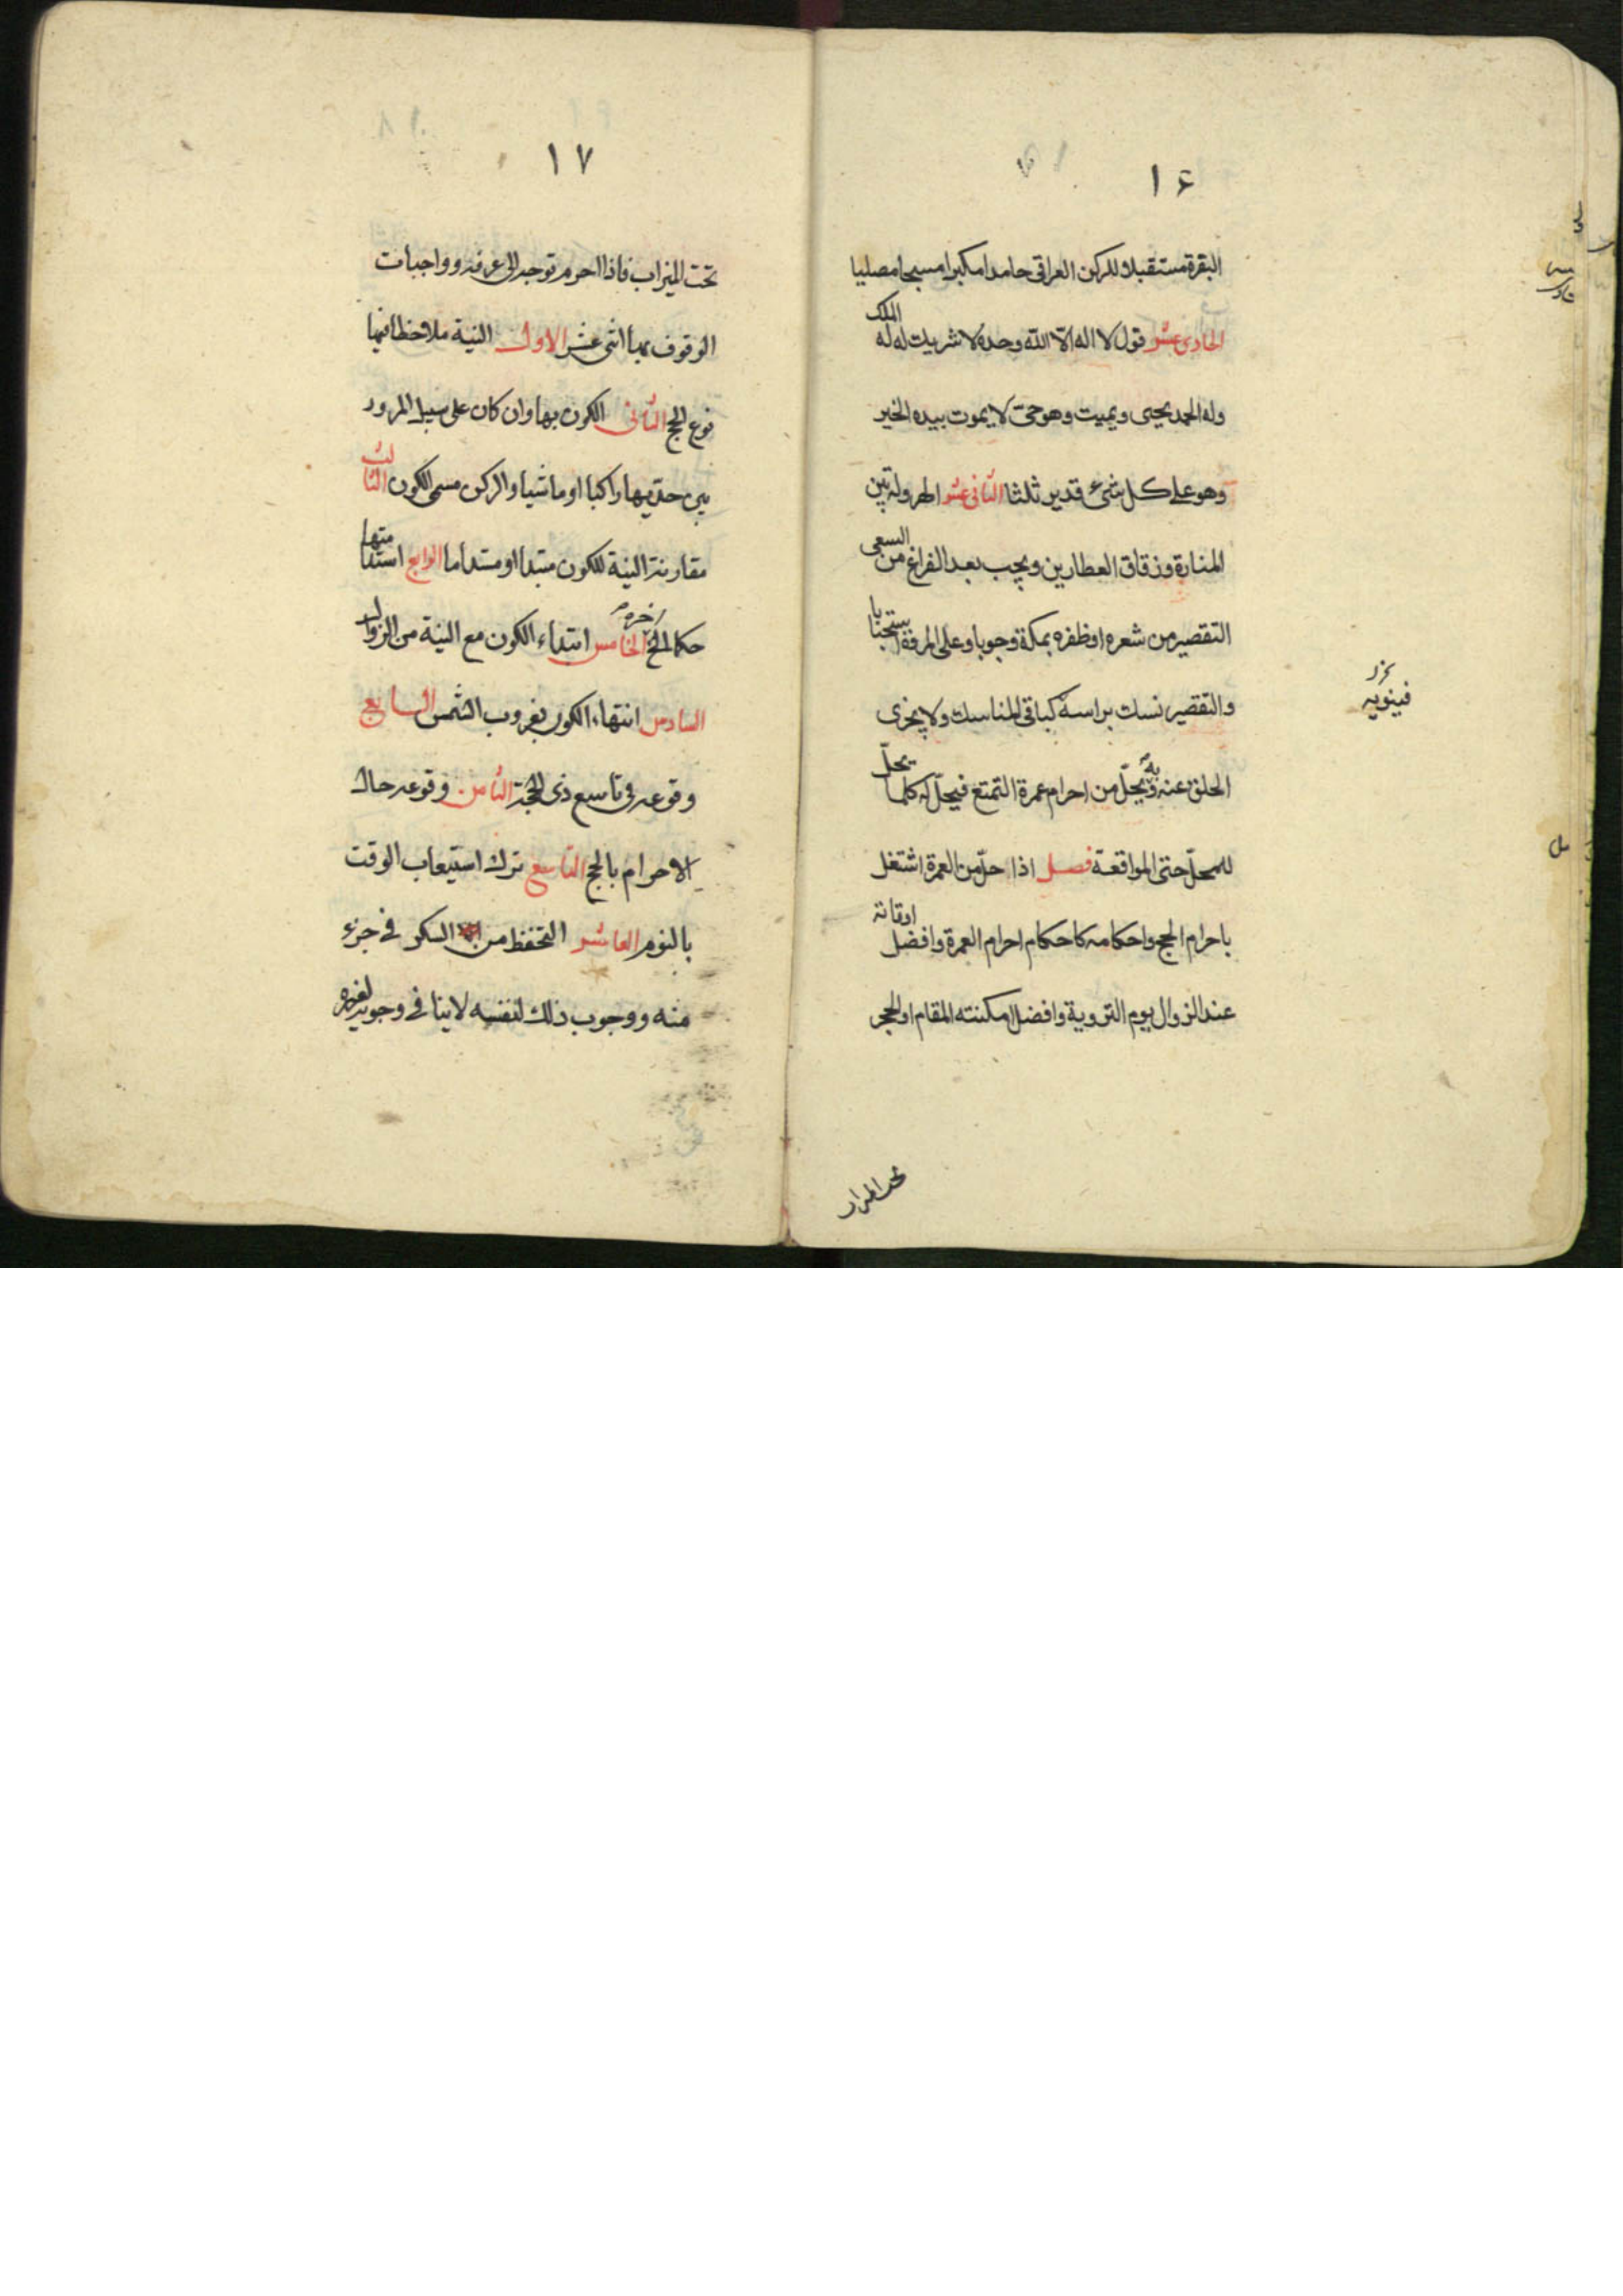 ١٦
البقرة مستقبلا للركن العراقي حامدا مكبرا مسبحا مصليا
الحادي عشر قول لا اله الا الله وحده لا شريك له له الملك
وله الحمد يحيى ويميت وهو حى لا يموت بيده الخير
وهو على كل شىء قدير ثلثا الثانى عشر الهرولة بين
المنارة وزقاق العطارين ويجب بعد الفراغ من السعى
التقصير من شعره او ظفره بمكة وجوبا وعلى المروة استحبابا
والتقصير نسك براسه كباقى المناسك ولا يجزى
الحلق عنه وبه يحلّ من احرام عمرة التمتع فيحلّ له كلما يحلّ
للمحلّ حتى المواقعة فصل اذا حلّ من العمرة اشتغل
باحرام الحج واحكامه كاحكام احرام العمرة وافضل اوقاته
عند الزوال يوم التروية وافضل امكنته المقام او الحجر
تحت الميزاب
١٧
تحت الميزاب فاذا احرم توجه الى عرفه وواجبات
الوقوف بها اثنى عشر الاول النية ملاحظا فيها
نوع الحج الثانى الكون بها وان كان على سبيل المرور
بين حديها راكبا او ماشيا والركن مسمى الكون الثالث
مقارنة النية للكون مبتدا او مستداما الرابع استدامتها
حكما الى آخره الخامس ابتداء الكون مع النية من الزوال
السادس انتهاء الكون بغروب الشمس السابع
وقوعه فى تاسع ذى الحجة الثامن وقوعه حال
الاحرام بالحج التاسع ترك استيعاب الوقت
بالنوم العاشر التحفظ من السكر فى جزء
منه ووجوب ذلك لنفسه لا ينافى وجوبه لغيره